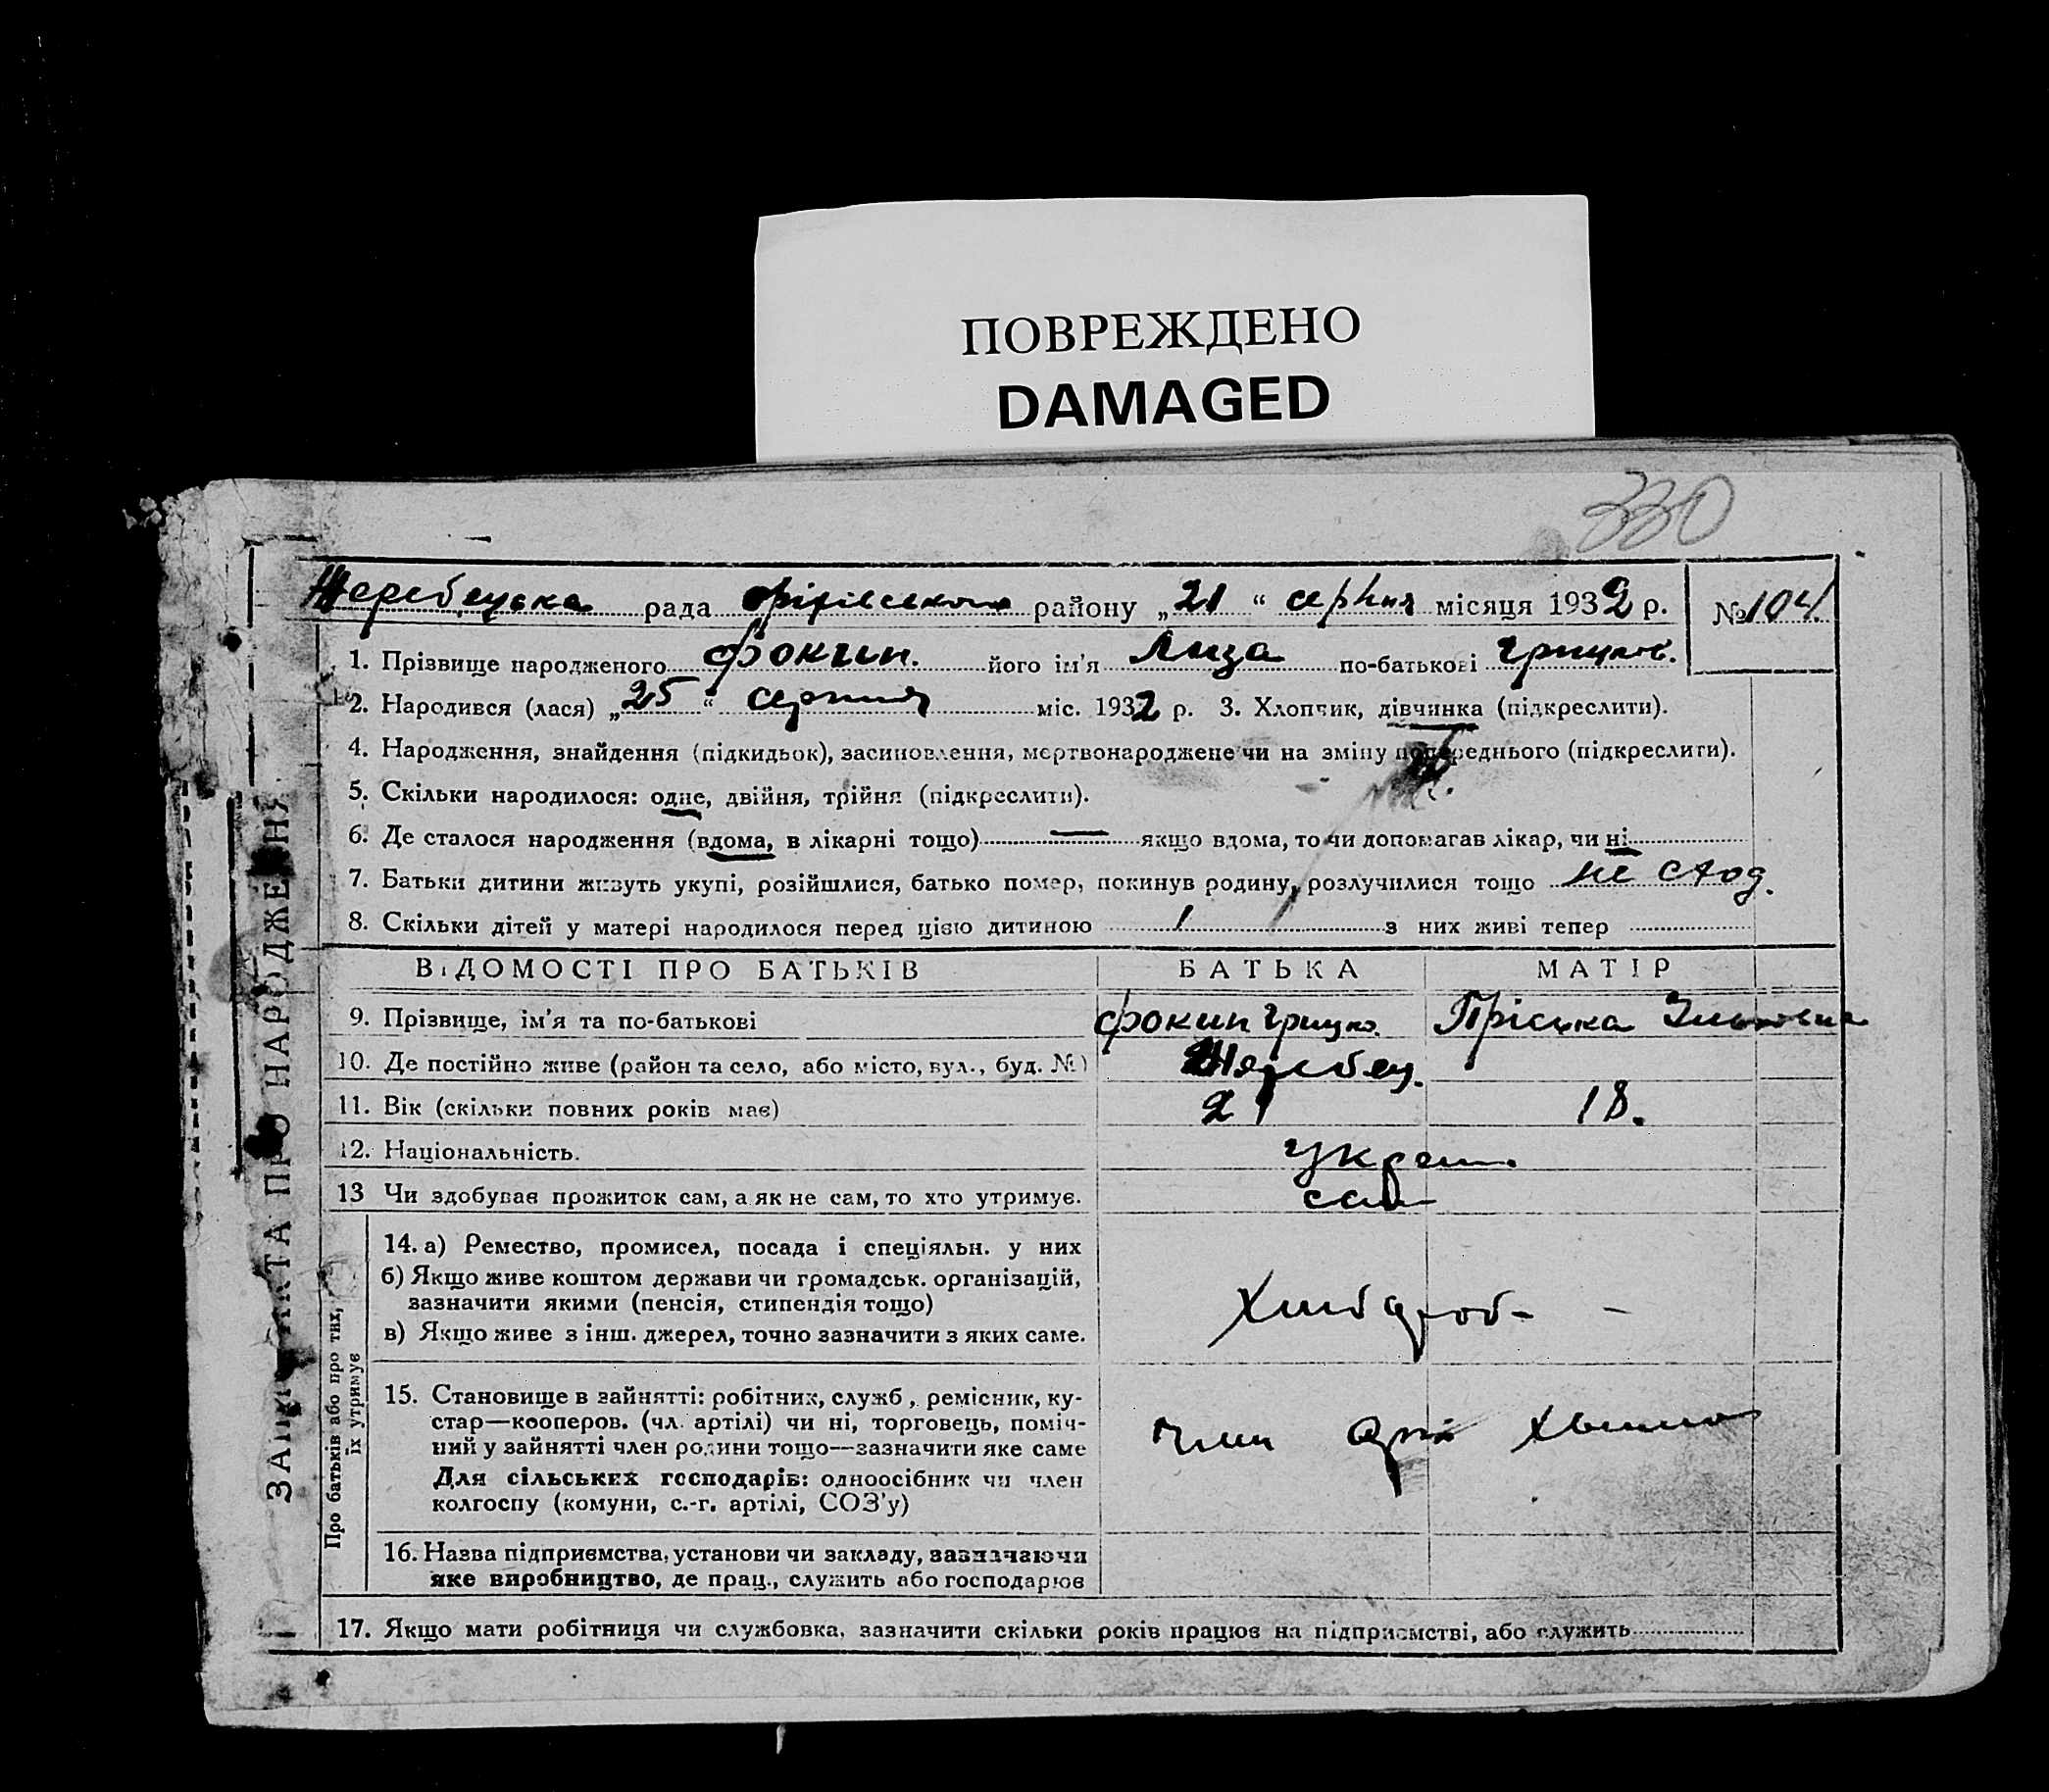 ПОВРЕЖДЕНО
DAMAGED
330
Жеребецька рада оріхівського району „21“ серпня місяця 1932 р. № 104.
1. Прізвище народженого Фокин. його ім'я Лиза по-батькові Грицьков.
2. Народився (лася) „25“ серпня міс. 1932 р. 3. Хлопчик, дівчинка (підкреслити).
4. Народження, знайдення (підкидьок), засиновлення, мертвонароджене чи на зміну попереднього (підкреслити).
5. Скільки народилося: одне, двійня, трійня (підкреслити).
6. Де сталося народження (вдома, в лікарні тощо) — якщо вдома, то чи допомагав лікар, чи ні
7. Батьки дитини живуть укупі, розійшлися, батько помер, покинув родину, розлучилися тощо
8. Скільки дітей у матері народилося перед цією дитиною 1 з них живі тепер
ВІДОМОСТІ ПРО БАТЬКІВ БАТЬКА МАТІР
9. Прізвище, ім'я та по-батькові Фокин Грицко. Пріська
10. Де постійно живе (район та село, або місто, вул., буд. №) Жеребец.
11. Вік (скільки повних років має) 21 18.
12. Національність. Украин.
13 Чи здобуває прожиток сам, а як не сам, то хто утримує. сам
14. а) Ремество, промисел, посада і спеціяльн. у них
б) Якщо живе коштом держави чи громадськ. організацій,
зазначити якими (пенсія, стипендія тощо)
Хлибороб- –
в) Якщо живе з інш. джерел, точно зазначити з яких саме.
15. Становище в зайнятті: робітник, служб., ремісник, ку-
стар—кооперов. (чл. артілі) чи ні, торговець, поміч-
ний у зайнятті член родини тощо—зазначити яке саме
член
Для сільських господарів: одноосібник чи член
колгоспу (комуни, с.-г. артілі, СОЗ'у)
16. Назва підприємства, установи чи закладу, зазначаючи
яке виробництво, де прац., служить або господарює
17. Якщо мати робітниця чи службовка, зазначити скільки років працює на підприємстві, або служить
ЗАПИС АКТА ПРО НАРОДЖЕННЯ
Про батьків або про тих,
їх утримує